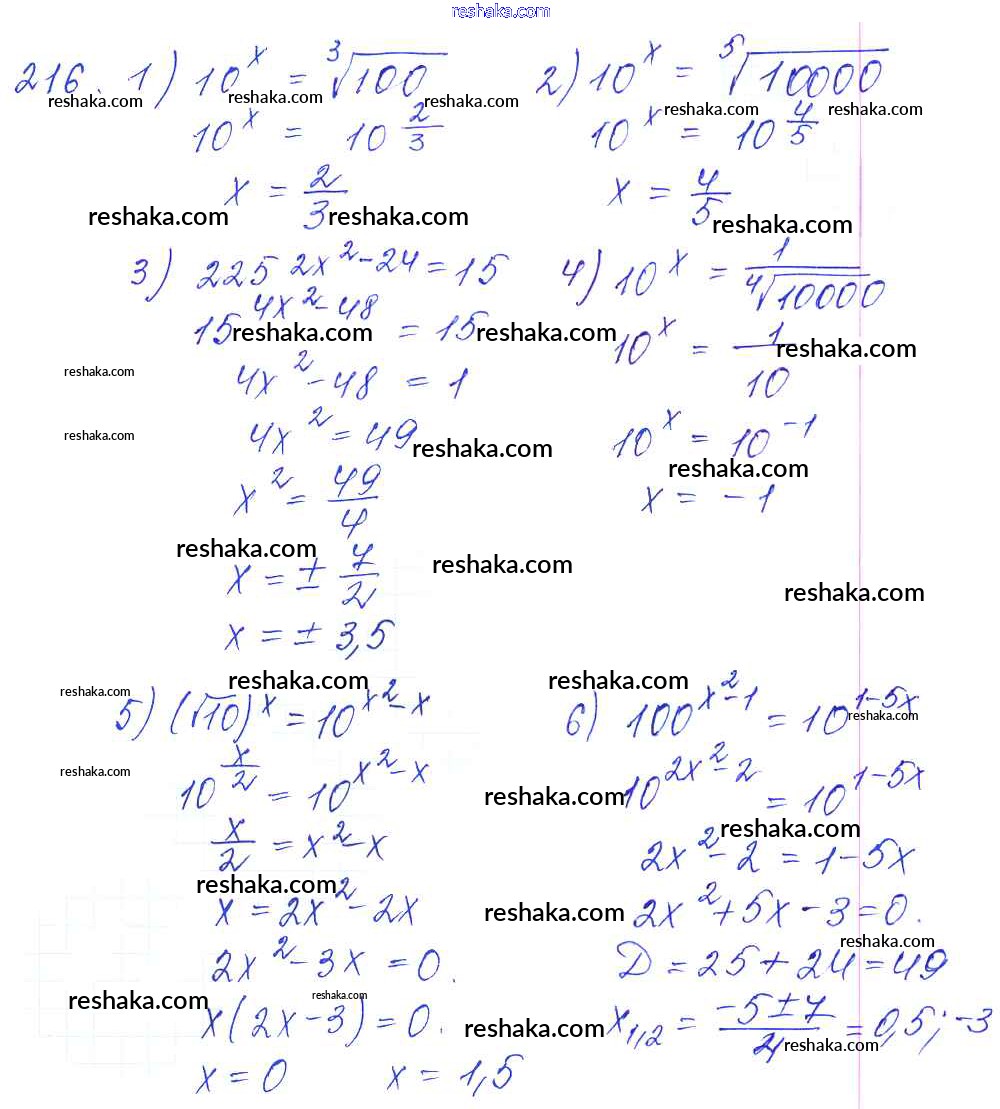 reshaka.com
216. 1) 10^x = ∛100
reshaka.com reshaka.com reshaka.com
10^x = 10^(2/3)
x = 2/3
reshaka.com reshaka.com
2) 10^x = ⁵√10000
reshaka.com reshaka.com
10^x = 10^(4/5)
x = 4/5
reshaka.com
3) 225^(2x²-24) = 15
15^(4x²-48) = 15
reshaka.com reshaka.com
4x² - 48 = 1
reshaka.com
4x² = 49
reshaka.com reshaka.com
x² = 49/4
reshaka.com reshaka.com
x = ± 7/2
x = ± 3,5
4) 10^x = 1/⁴√10000
10^x = 1/10
reshaka.com
10^x = 10^(-1)
reshaka.com
x = -1
reshaka.com
reshaka.com reshaka.com
5) (√10)^x = 10^(x²-x)
10^(x/2) = 10^(x²-x)
reshaka.com
x/2 = x² - x
reshaka.com
x = 2x² - 2x
2x² - 3x = 0.
reshaka.com reshaka.com
x(2x-3) = 0.
x = 0 x = 1,5
reshaka.com
6) 100^(x²-1) = 10^(1-5x)
reshaka.com
reshaka.com
10^(2x²-2) = 10^(1-5x)
reshaka.com
2x² - 2 = 1 - 5x
reshaka.com
2x² + 5x - 3 = 0.
reshaka.com
D = 25 + 24 = 49
reshaka.com
x₁,₂ = (-5 ± 7)/4 = 0,5; -3
reshaka.com